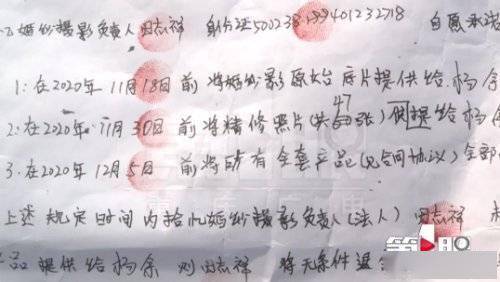 婚纱摄影负责人田志祥 身份证500238199401232718 自愿承诺
1:在2020年11月18日前将婚纱影原始底片提供给杨余
2:在2020年11月30日前将精修照片(共47张)提给杨
3:在2020年12月5日前将所有全套产品(见合同协议)全部
上述规定时间内拾忆婚纱摄影负责人(法人)田志祥
品提供给杨余 则田志祥 将无条件退
第1眼